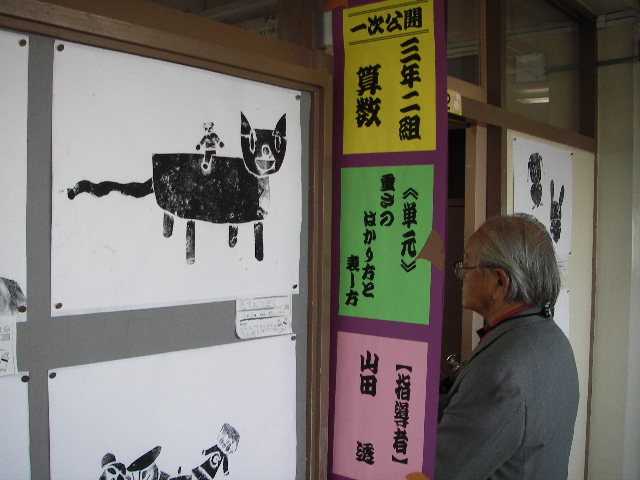 一次公開
三年二組
算数
《単元》
重さの
はかり方と
表し方
【指導者】
山田 透